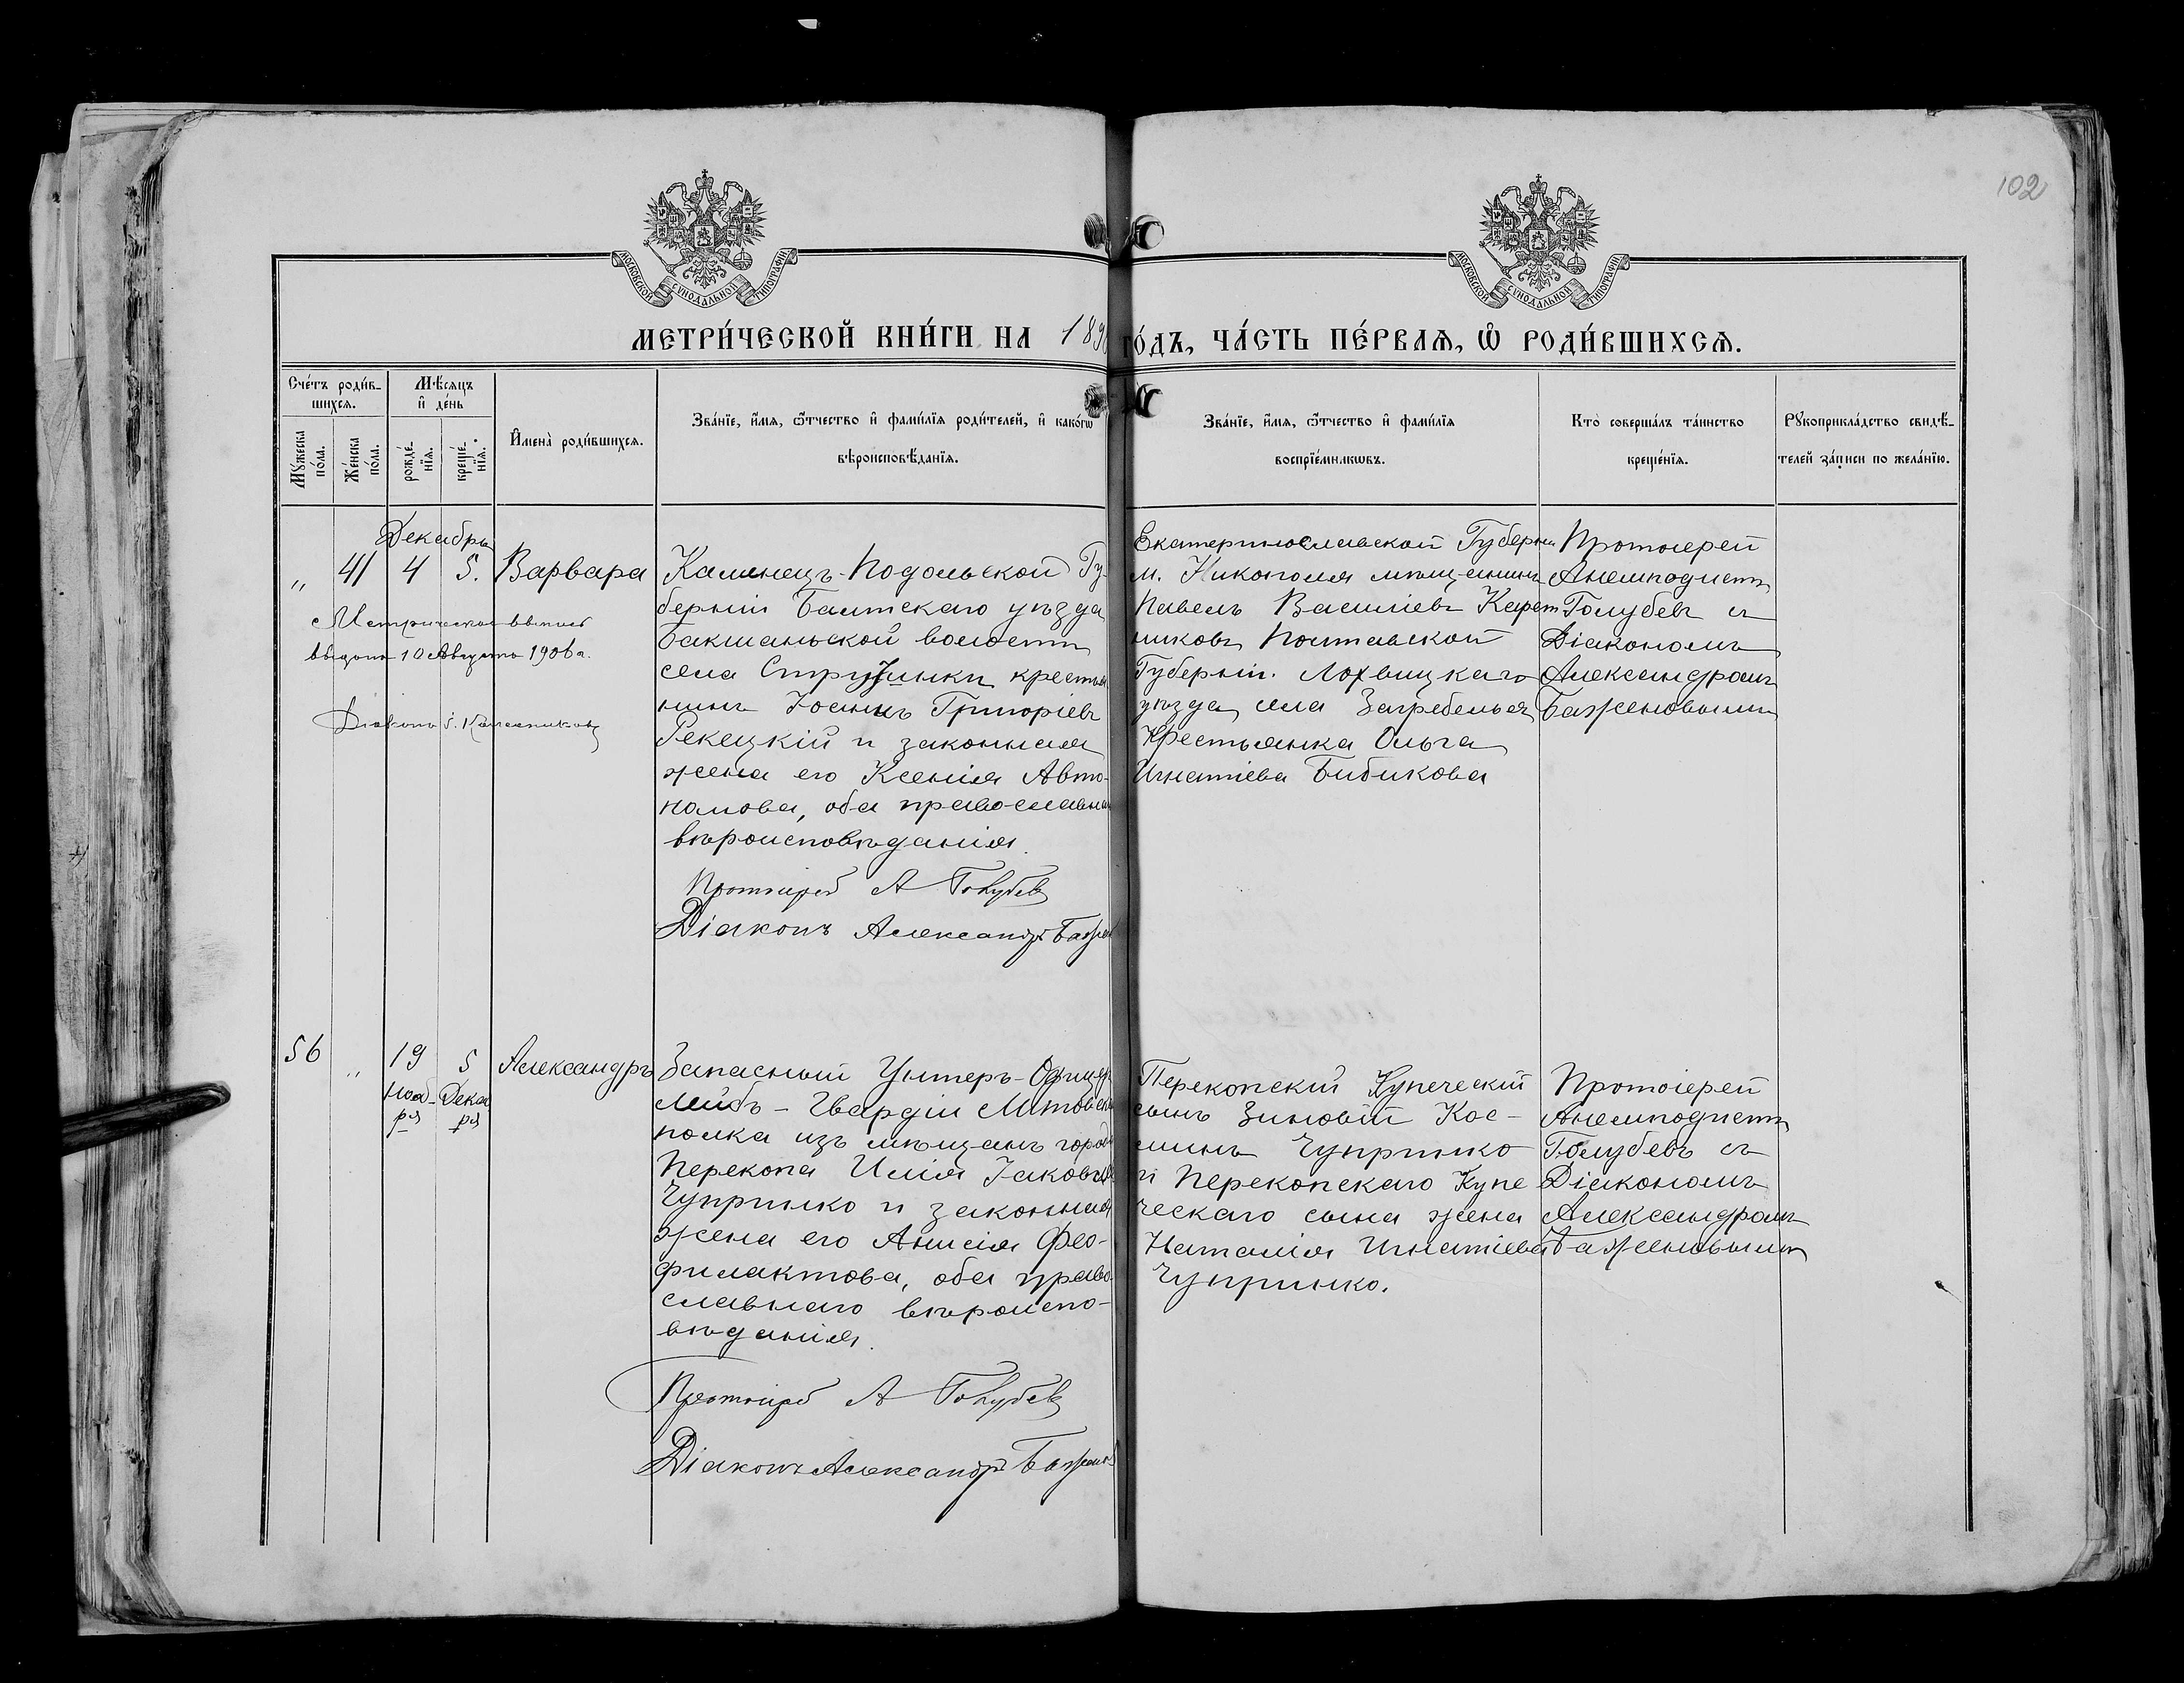 102
МОСКОВСКОЙ СУНОДАЛЬНОЙ ТИПОГРАФІИ
МОСКОВСКОЙ СУНОДАЛЬНОЙ ТИПОГРАФІИ
МЕТРИ́ЧЕСКОЙ КНИ́ГИ НА 189
ГО́ДЪ, ЧА́СТЬ ПЕ́РВАѦ, Ѡ РОДИ́ВШИХСѦ.
Сче́тъ роди́в-
шихсѧ.
Мꙋ́жеска по́ла.
Же́нска по́ла.
Мѣ́сѧцъ
и҆ де́нь
рожде́-
нїѧ.
креще́-
нїѧ.
И҆мена̀ роди́вшихсѧ.
Зва́нїе, и҆́мѧ, ѻ҆́тчество и҆ фами́лїѧ роди́телей, и҆ како́гѡ
вѣроисповѣ́данїѧ.
Зва́нїе, и҆́мѧ, ѻ҆́тчество и҆ фами́лїѧ
воспрїе́мникѡвъ.
Кто̀ соверша́лъ та́инство
креще́нїѧ.
Рꙋкоприкла́дство свидѣ́-
телей за́писи по жела́нїю.
Декабрь
„ 41 4 5. Варвара
Метрическая выпись
выдана 10 Августа 1906 г.
Діаконъ І. Колесниковъ
Каменецъ-Подольской Гу-
берніи Балтскаго уѣзда
Бакшаньской волости
села крестья
нинъ Іоаннъ Григоріевъ
Рекецкій и законная
жена его Ксенія Авто-
номова, оба православна
вѣроисповѣданія.
Протоіерей А Голубев
Діаконъ Александръ Бажен
Екатеринославской Губерніи
м. Никополя мѣщанинъ
Павелъ Василіевъ Карет
никовъ Полтавской
Губерніи. Лохвицкаго
уѣзда, села Загребелья
Крестьянка Ольга
Игнатіева Бибикова
Протоіерей
Анемподистъ
Голубевъ съ
Діакономъ
Александромъ
Баженовымъ
56 „ 19 5 Александръ
Нояб- Декаб
ря ря
Запасный Унтеръ-Офице
Лейбъ-Гвардіи Литовска
полка изъ мѣщанъ города
Перекопа Илія Іаковлев
Чупринко и законная
жена его Анисія Фео-
филактова, оба право-
славнаго вѣроиспо-
вѣданія.
Протоіерей А Голубев
Діаконъ Александръ Баженов
Перекопскій Купеческій
сынъ Зиновій Кос-
минъ Чупринко
и Перекопскаго Купе
ческаго сына жена
Наталія Игнатіева
Чупринко.
Протоіерей
Анемподистъ
Голубевъ съ
Діакономъ
Александромъ
Баженовымъ